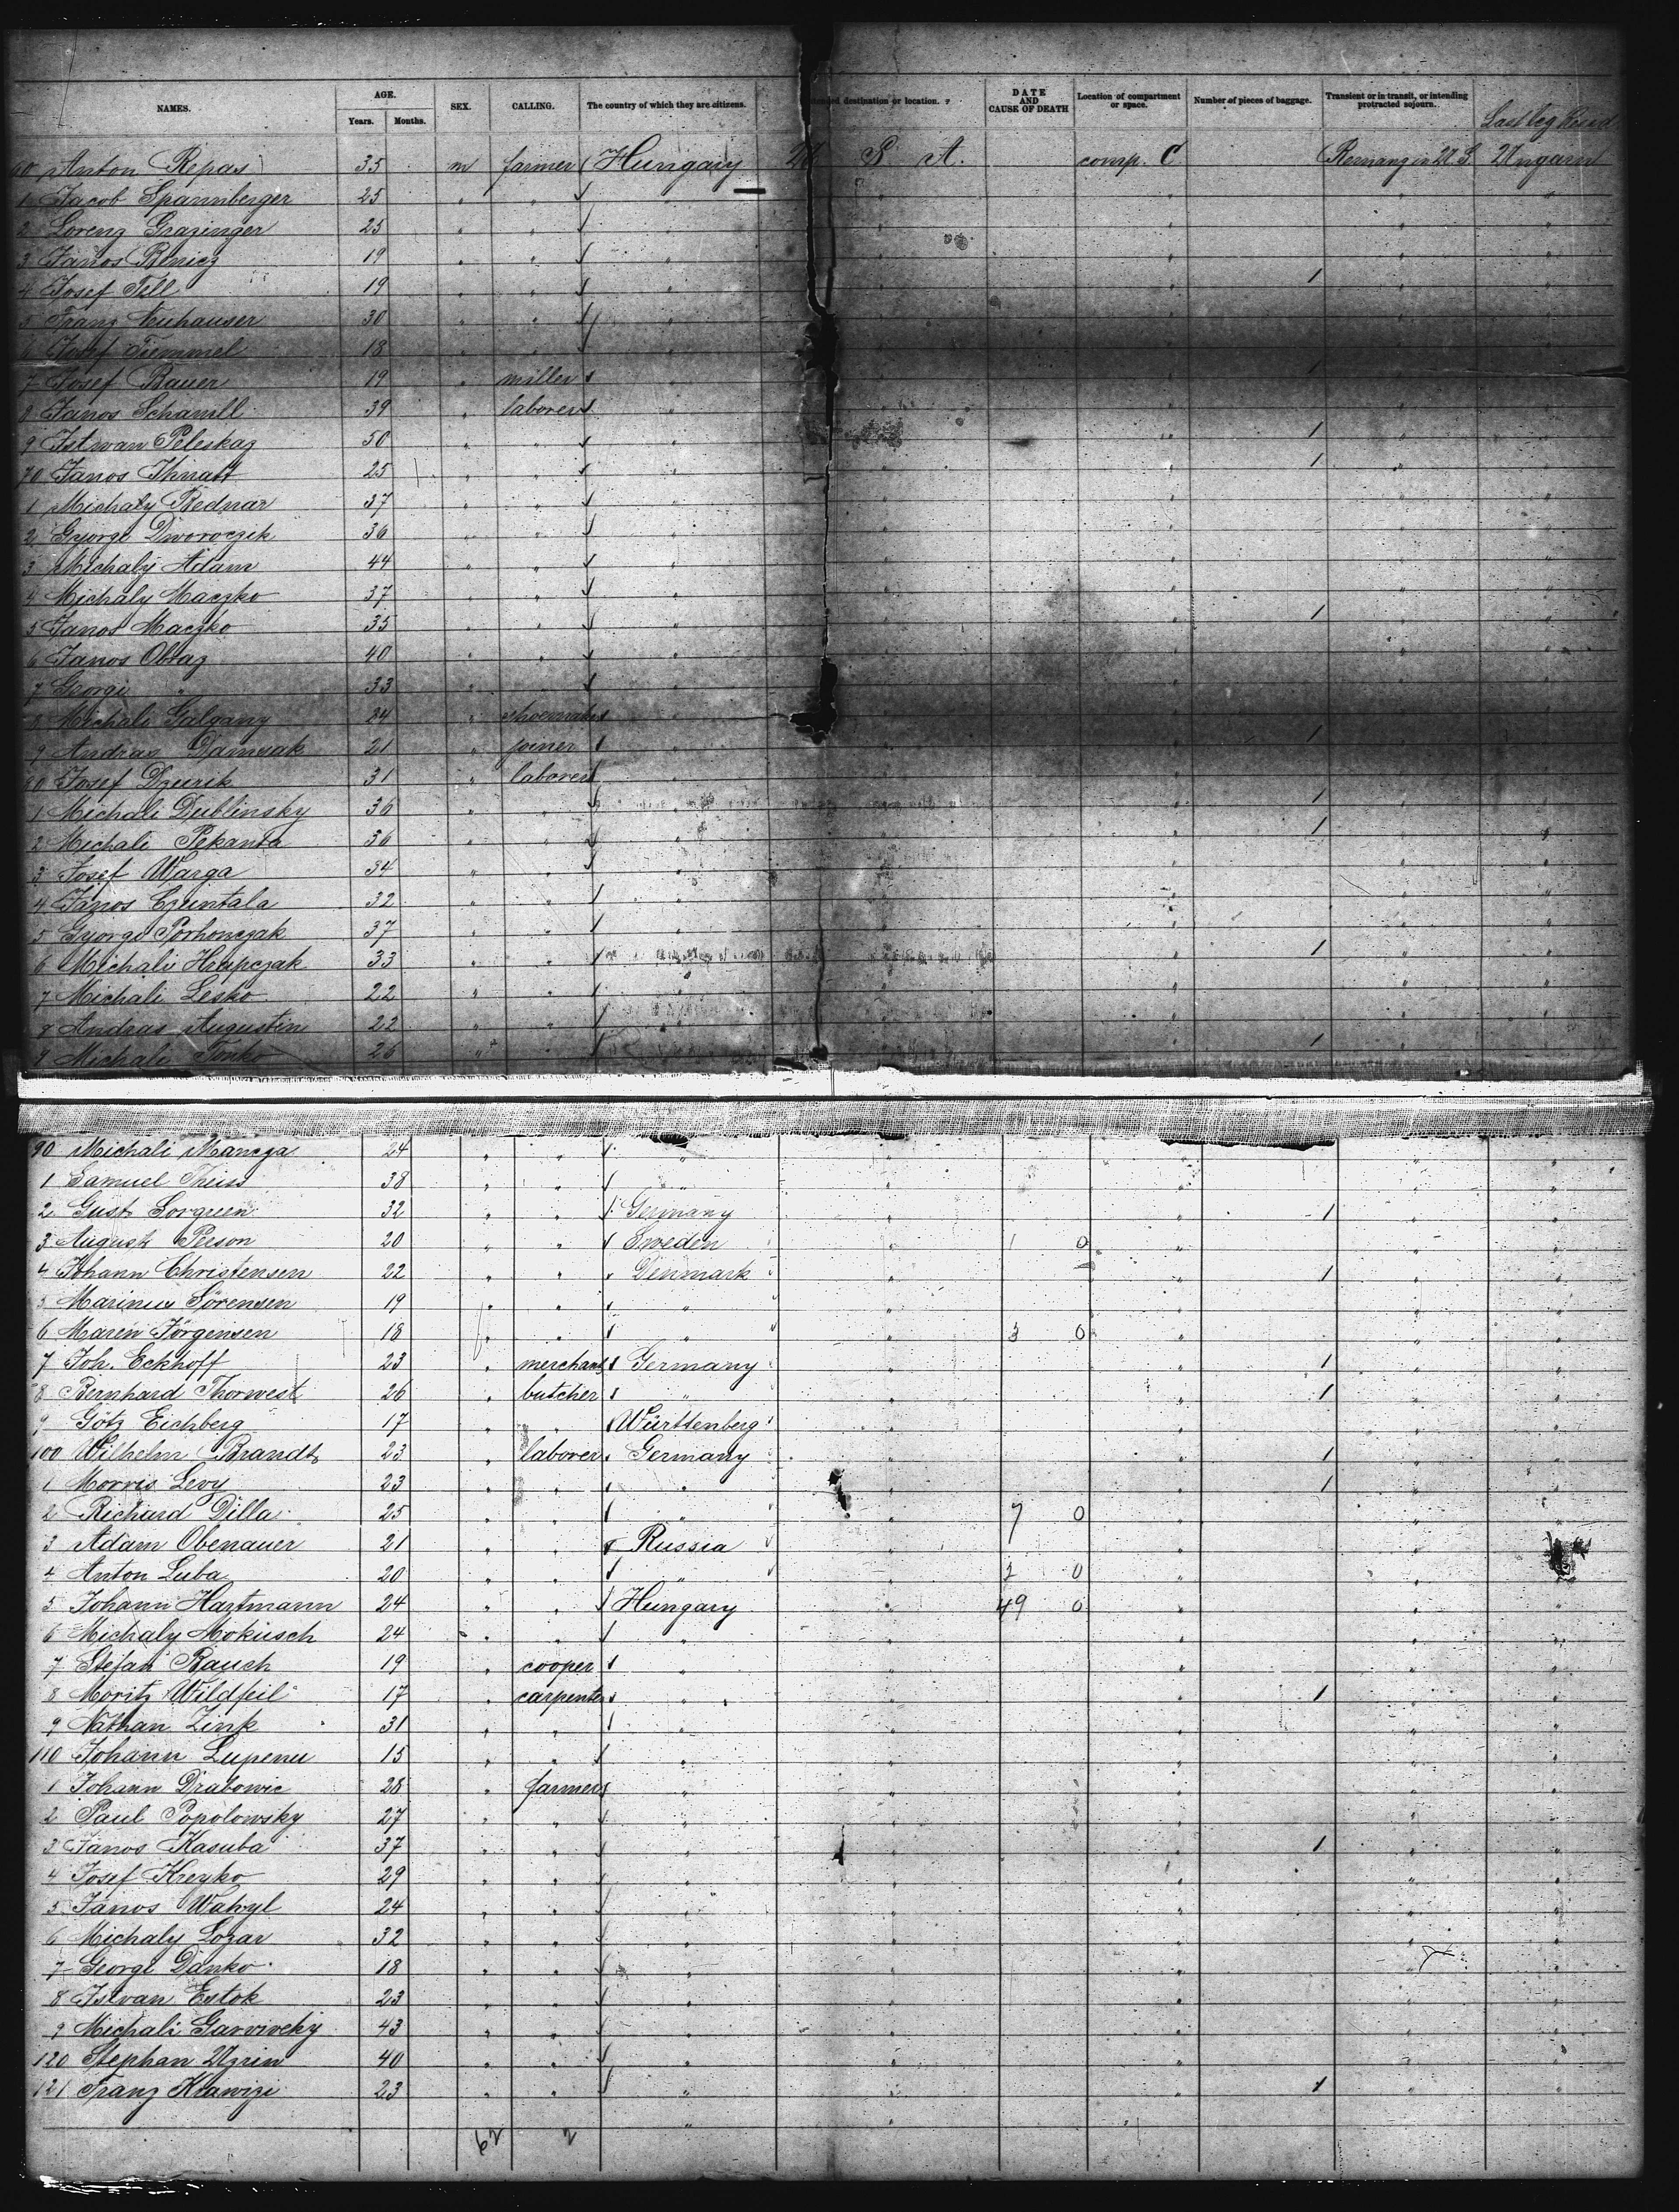 NAMES. AGE. Years. Months. SEX. CALLING. The country of which they are citizens. destination or location. DATE AND CAUSE OF DEATH Location of compartment or space. Number of pieces of baggage. Transient or in transit, or intending protracted sojourn. Last leg Resid
60 Anton Repas 35 m farmer Hungary U S A. comp. C Remang in U.S. Ungarn
1 Jacob Spannberger 25 " " " " " " "
2 Lorenz Grazinger 25 " " " " " " "
3 Janos Benicz 19 " " " " " " "
4 Josef Tell 19 " " " " " 1 " "
5 Franz 30 " " " " " " "
6 Josef 18 " " " " " " "
7 Josef Bauer 19 " miller " " " 1 " "
8 Janos Schamll 39 " laborer " " " " "
9 Istwan Peleskaz 50 " " " " " 1 " "
70 Janos Ihnatt 25 " " " " " 1 " "
1 Michaly Bednar 37 " " " " " " "
2 Gyorgi Dworoczik 36 " " " " " " "
3 Michaly Adam 44 " " " " " " "
4 Michaly Maczko 37 " " " " " " "
5 Janos Maczko 35 " " " " " 1 " "
6 Janos Obtaz 40 " " " " " " "
7 Georgi " 33 " " " " " " "
8 Michali Galgany 24 " shoemaker " " " " "
9 Andras 21 " joiner " " " 1 " "
80 Josef Dzurik 31 " laborer " " " " "
1 Michali Dublinsky 36 " " " " " 1 " "
2 Michali Pekanta 36 " " " " " 1 " "
3 Josef Warga 34 " " " " " " "
4 Janos Czuntala 32 " " " " " " "
5 Gyorgi Porhonczak 37 " " " " " " "
6 Michali Hrupczak 33 " " " " " 1 " "
7 Michali Lesko 22 " " " " " " "
8 Andras Augustin 22 " " " " " " "
9 Michali Tonko 26 " " " " " 1 " "
90 Michali Mancza 24 " " " " " "
1 Samuel Theiss 38 " " " " " " "
2 Gust Lorquen 32 " " Germany " " 1 " "
3 August Person 20 " " Sweden " 1 0 " " "
4 Johann Christensen 22 " " Denmark " " 1 " "
5 Marinus Sörensen 19 " " " " " " "
6 Maren Jörgensen 18 " " " " 3 0 " " "
7 Joh. Eckhoff 23 " merchant Germany " " 1 " "
8 Bernhard Thorwest 26 " butcher " " " 1 " "
9 Götz Eichberg 17 " " Württenberg " " " "
100 Wilhelm Brandt 23 " laborer Germany " " 1 " "
1 Morris Levy 23 " " " " " 1 " "
2 Richard Dilla 25 " " " " 7 0 " " "
3 Adam Obenauer 21 " " Russia " " " "
4 Anton Luba 20 " " " " 2 0 " " "
5 Johann Hartmann 24 " " Hungary " 49 0 " " "
6 Michaly Mokusch 24 " " " " " " "
7 Stefan Rauch 19 " cooper " " " " "
8 Moritz Wildfeil 17 " carpenter " " " 1 " "
9 Nathan Zink 31 " " " " " " "
110 Johann Lupenu 15 " " " " " " "
1 Johann Drabowic 28 " farmer " " " " "
2 Paul Popolowsky 27 " " " " " " "
3 Janos Kasuba 37 " " " " " 1 " "
4 Josef Krezko 29 " " " " " " "
5 Janos Wahyl 24 " " " " " " "
6 Michaly Lozar 32 " " " " " " "
7 Georgi Danko 18 " " " " " " "
8 Istvan Estok 23 " " " " " " "
9 Michali 43 " " " " " " "
120 Stephan Ugrin 40 " " " " " " "
121 Franz Krawizi 23 " " " " " 1 " "
62 2